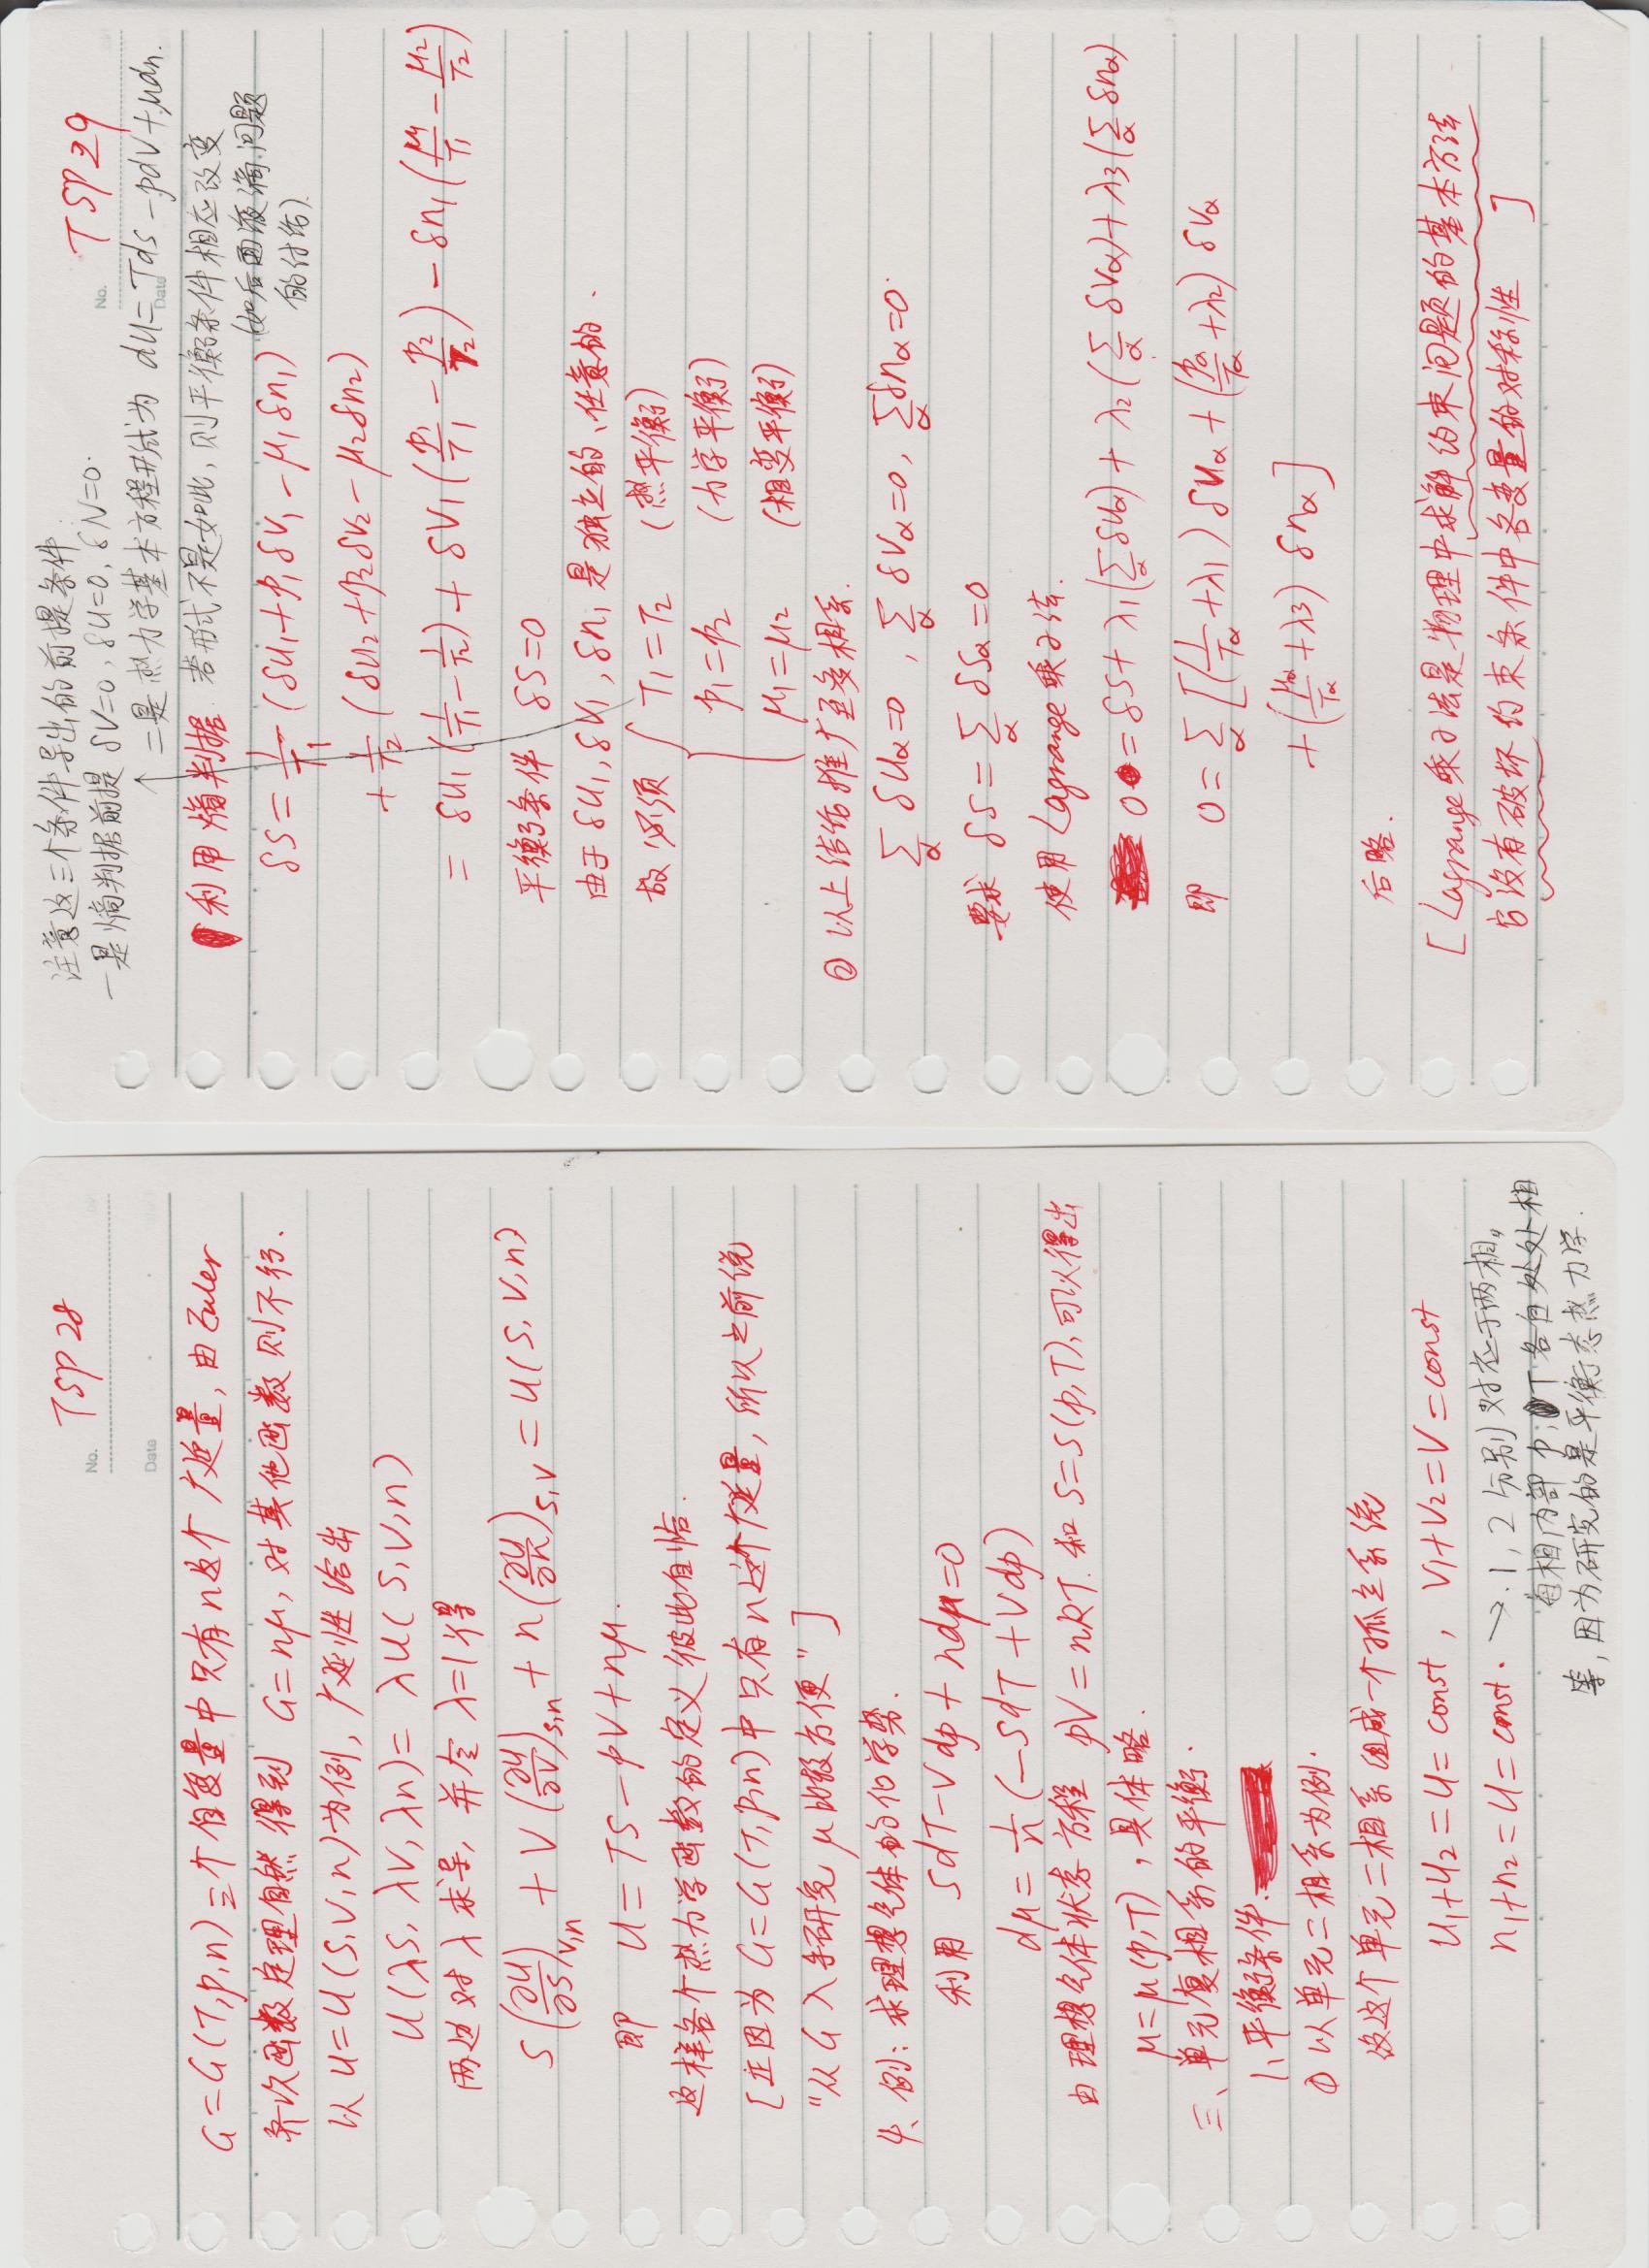 TSP 28
No.
Date
G=G(T,p,n)三个自变量中只有n这个广延量,由Euler
齐次函数定理自然得到 G=nμ,对其他函数则不行.
以U=U(S,V,n)为例,广延性给出
U(λS,λV,λn)=λU(S,V,n)
两边对λ求导,并令λ=1得
S(∂U/∂S)_{V,n} + V(∂U/∂V)_{S,n} + n(∂U/∂n)_{S,V} = U(S,V,n)
即 U=TS-pV+nμ.
这样各个热力学函数的定义彼此自恰.
[正因为G=G(T,p,n)中只有n这个广延量,所以之前说
"从G入手研究μ比较方便"]
4、例:求理想气体的化学势.
利用 SdT-Vdp+ndμ=0
dμ=1/n(-SdT+Vdp)
由理想气体状态方程 pV=nRT.和S=S(p,T),可以得出
μ=μ(p,T),具体略.
三、单元复相系的平衡.
1、平衡条件.
① 以单元二相系为例.
设这个单元二相系组成一个孤立系统
U₁+U₂=U=const, V₁+V₂=V=const
n₁+n₂=U=const. → 1,2分别对应于两相。
每相内部p,T各自处处相
等,因为研究的是平衡态热力学.
TSP 29
No.
Date
注意这三个条件导出的前提条件
一是熵判据前提 δV=0,δU=0,δN=0.
二是热力学基本方程形式为 dU=TdS-pdV+μdn.
利用熵判据 若形式不是如此,则平衡条件相应改变
(如后面液滴问题
的讨论)
δS=1/T₁(δU₁+p₁δV₁-μ₁δn₁)
+1/T₂(δU₂+p₂δV₂-μ₂δn₂)
=δU₁(1/T₁-1/T₂)+δV₁(p₁/T₁-p₂/T₂)-δn₁(μ₁/T₁-μ₂/T₂)
平衡条件 δS=0
由于δU₁,δV₁,δn₁是独立的、任意的.
故必须 { T₁=T₂ (热平衡)
p₁=p₂ (力学平衡)
μ₁=μ₂ (相变平衡)
② 以上结论推广至多相系.
∑_α δU_α=0, ∑_α δV_α=0, ∑_α δn_α=0.
要求 δS=∑_α δS_α=0
使用Lagrange乘子法.
0=δS+λ₁(∑_α δU_α)+λ₂(∑_α δV_α)+λ₃(∑_α δn_α)
即 0=∑_α[(1/T_α+λ₁)δU_α+(p_α/T_α+λ₂)δV_α
+(μ_α/T_α+λ₃)δn_α]
后略.
[Lagrange乘子法是物理中求解约束问题的基本方法
它没有破坏约束条件中各变量的对称性 ]